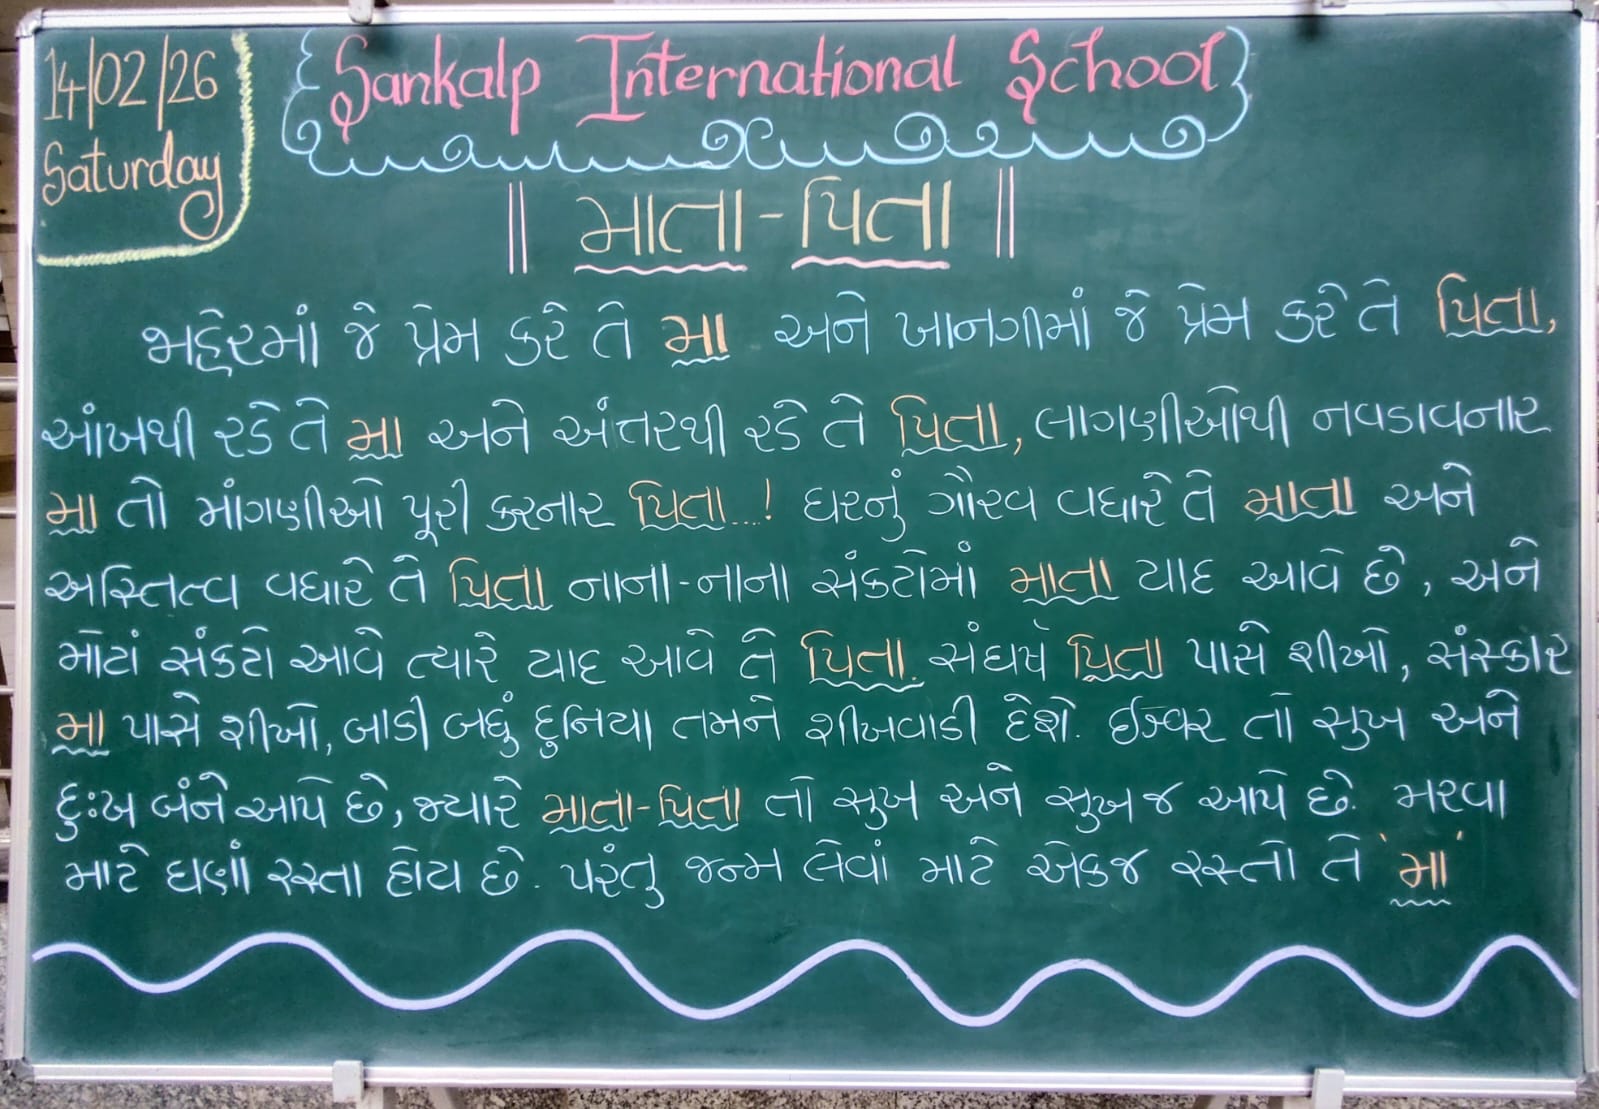 14/02/26
Saturday
Sankalp International School
|| માતા-પિતા ||
જાહેરમાં જે પ્રેમ કરે તે મા અને ખાનગીમાં જે પ્રેમ કરે તે પિતા,
આંખથી રડે તે મા અને અંતરથી રડે તે પિતા, લાગણીઓથી નવડાવનાર
મા તો માંગણીઓ પૂરી કરનાર પિતા...! ઘરનું ગૌરવ વધારે તે માતા અને
અસ્તિત્વ વધારે તે પિતા નાના-નાના સંકટોમાં માતા યાદ આવે છે, અને
મોટાં સંકટો આવે ત્યારે યાદ આવે તે પિતા. સંઘર્ષ પિતા પાસે શીખો, સંસ્કાર
મા પાસે શીખો, બાકી બધું દુનિયા તમને શીખવાડી દેશે. ઈશ્વર તો સુખ અને
દુઃખ બંને આપે છે, જ્યારે માતા-પિતા તો સુખ અને સુખ જ આપે છે. મરવા
માટે ઘણાં રસ્તા હોય છે. પરંતુ જન્મ લેવાં માટે એકજ રસ્તો તે 'મા'